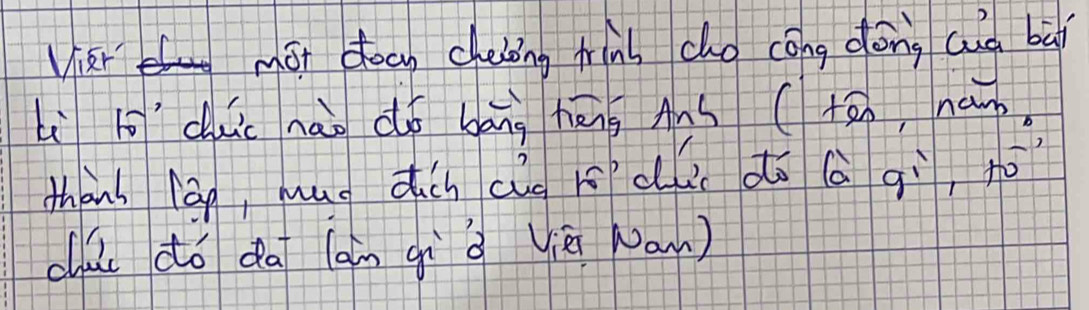 Viết một đoạn chương trình cho cộng đồng của bất
kì tổ chức nào đó bằng tiếng Anh ( tên, năm
thành lập, mục đích của tổ chức đó là gì, tổ
chức đó đã làm gì ở Việt Nam)